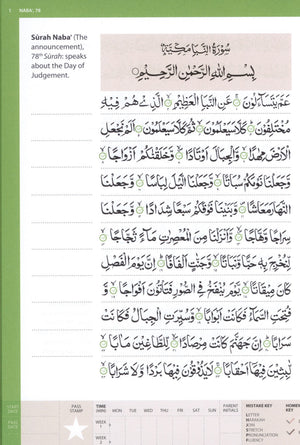 1 NABA', 78
Sūrah Naba' (The
announcement),
78th Sūrah: speaks
about the Day of
Judgement.
سُوْرَةُ النَّبَإِ مَكِّيَّةٌ
بِسْمِ اللهِ الرَّحْمٰنِ الرَّحِيْمِ
عَمَّ يَتَسَآءَلُوْنَ ۝ عَنِ النَّبَاِ الْعَظِيْمِ ۝ الَّذِيْ هُمْ فِيْهِ
مُخْتَلِفُوْنَ ۝ كَلَّا سَيَعْلَمُوْنَ ۝ ثُمَّ كَلَّا سَيَعْلَمُوْنَ ۝ اَلَمْ نَجْعَلِ
الْاَرْضَ مِهٰدًا ۝ وَّالْجِبَالَ اَوْتَادًا ۝ وَّخَلَقْنٰكُمْ اَزْوَاجًا ۝
وَّجَعَلْنَا نَوْمَكُمْ سُبَاتًا ۝ وَّجَعَلْنَا الَّيْلَ لِبَاسًا ۝ وَّجَعَلْنَا
النَّهَارَ مَعَاشًا ۝ وَّبَنَيْنَا فَوْقَكُمْ سَبْعًا شِدَادًا ۝ وَّجَعَلْنَا
سِرَاجًا وَّهَّاجًا ۝ وَّاَنْزَلْنَا مِنَ الْمُعْصِرٰتِ مَآءً ثَجَّاجًا ۝
لِّنُخْرِجَ بِهٖ حَبًّا وَّنَبَاتًا ۝ وَّجَنّٰتٍ اَلْفَافًا ۝ اِنَّ يَوْمَ الْفَصْلِ
كَانَ مِيْقَاتًا ۝ يَّوْمَ يُنْفَخُ فِى الصُّوْرِ فَتَاْتُوْنَ اَفْوَاجًا ۝ وَّ
فُتِحَتِ السَّمَآءُ فَكَانَتْ اَبْوَابًا ۝ وَّسُيِّرَتِ الْجِبَالُ فَكَانَتْ
سَرَابًا ۝ اِنَّ جَهَنَّمَ كَانَتْ مِرْصَادًا ۝ لِّلطَّاغِيْنَ مَاٰبًا ۝
لّٰبِثِيْنَ فِيْهَاۤ اَحْقَابًا ۝ لَا يَذُوْقُوْنَ فِيْهَا بَرْدًا وَّلَا شَرَابًا ۝
START DATE
PASS DATE
PASS STAMP
TIME (MIN) MON TUES WED THUR FRI SAT SUN
WEEK 1
WEEK 2
PARENT INITIALS
MISTAKE KEY
LETTER
HARAKAH
JOIN
STRETCH
PRONUNCIATION
FLUENCY